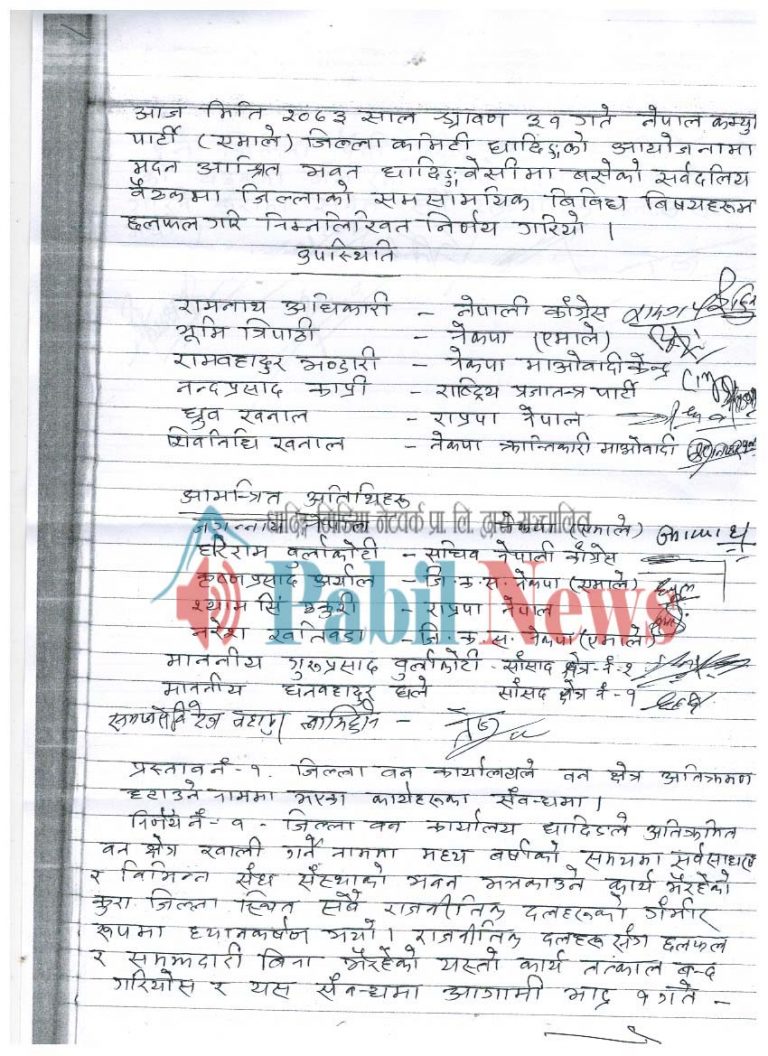 आज मिति २०७३ साल श्रावण ३१ गते नेपाल कम्यु
पार्टी (एमाले) जिल्ला कमिटी धादिङको आयोजनामा
मदन आश्रित भवन धादिङ्ग वेसीमा बसेको सर्वदलिय
बैठकमा जिल्लाको समसामयिक बिविध बिषयहरूमा
छलफल गरि निम्नलिखित निर्णय गरियो ।
उपस्थिति
रामनाथ अधिकारी - नेपाली काँग्रेस
भूमि त्रिपाठी - नेकपा (एमाले)
रामवहादुर भण्डारी - नेकपा माओवादी केन्द्र
नन्दप्रसाद काप्री - राष्ट्रिय प्रजातन्त्र पार्टी
ध्रुव खनाल - राप्रपा नेपाल
शिवनिधि खनाल - नेकपा क्रान्तिकारी माओवादी
आमन्त्रित अतिथिहरू
धादिङ मिडिया नेटवर्क प्रा. लि. द्वारा सञ्चालित
जगन्नाथ नेपाल (एमाले)
हरिराम वर्लाकोटी - सचिव नेपाली काँग्रेस
कृष्णप्रसाद अर्याल - जि.क.स. नेकपा (एमाले)
Pabil News
श्याम सिं ठकुरी - राप्रपा नेपाल
नरेश खतिवडा - जि.क.स. नेकपा (एमाले)
माननीय गुरुप्रसाद वुर्लाकोटी - साँसद क्षेत्र नं - २
माननीय धनवहादुर घले साँसद क्षेत्र नं - १
प्रस्ताव नं - १. जिल्ला वन कार्यालयले वन क्षेत्र अतिक्रमण
हटाउने नाममा भएका कार्यहरूका संवन्धमा ।
निर्णय नं - १ - जिल्ला वन कार्यालय धादिङले अतिक्रमित
वन क्षेत्र खाली गर्ने नाममा मध्य बर्षाको समयमा सर्वसाधारण
र विभिन्न संघ संस्थाको भवन भत्काउने कार्य भैरहेको
कुरा जिल्ला स्थित सवै राजनीतिक दलहरूको गंभीर
रूपमा ध्यानकर्षण भयो । राजनीतिक दलहरू संग छलफल
र समझदारी बिना भैरहेको यस्तो कार्य तत्काल बन्द
गरियोस र यस संवन्धमा आगामी भाद्र १ गते -